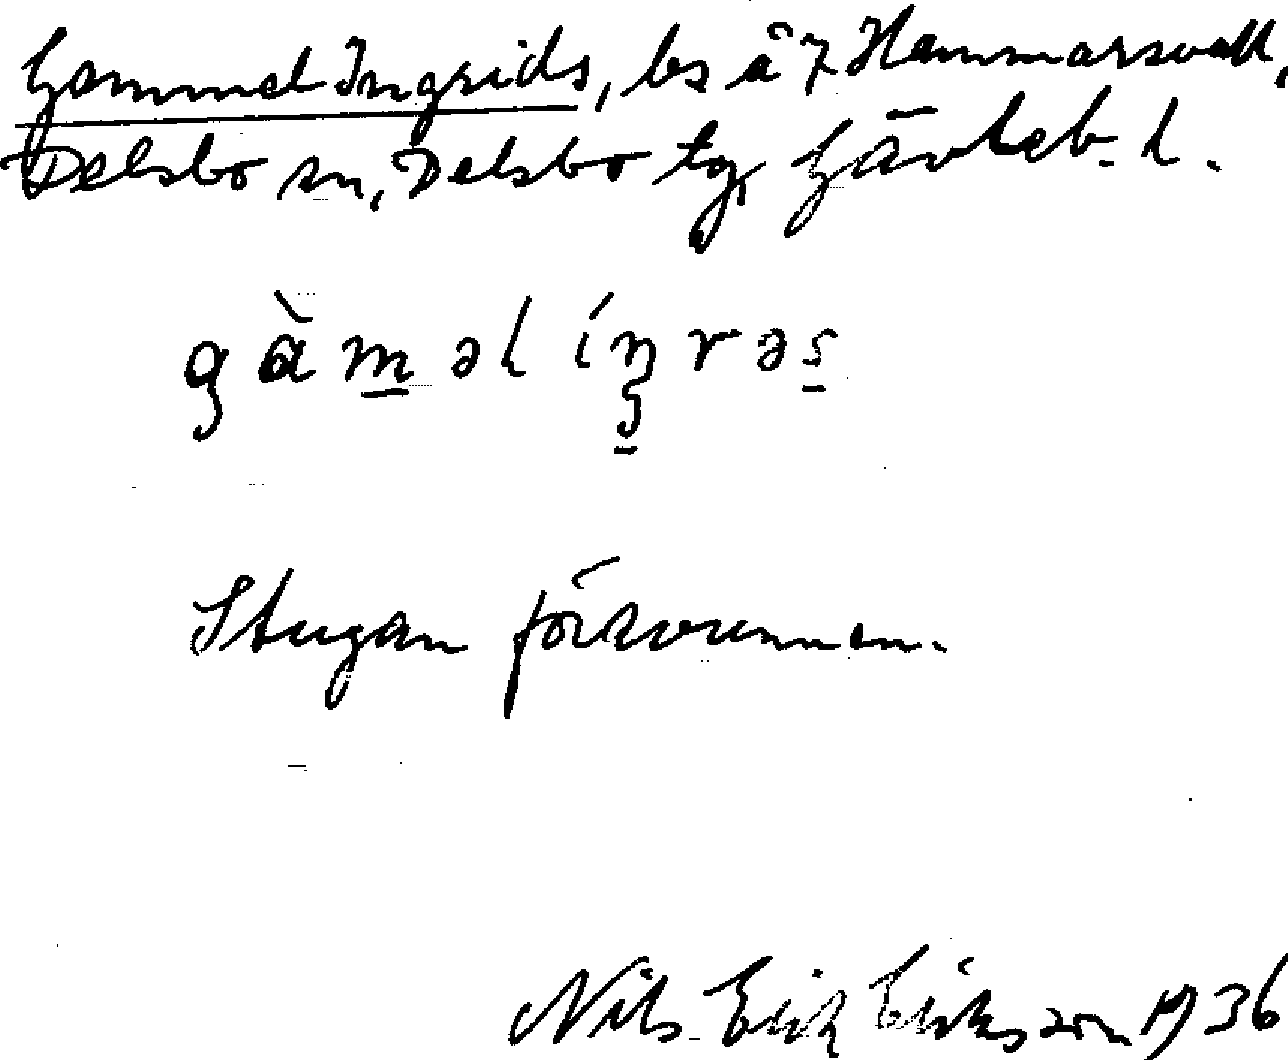 Gammel Ingrids, bs å 7 Hammarsvall,
Delsbo sn, Delsbo tg, Gävleb. l.
gàməl íŋrəs
Stugan försvunnen.
Nils-Erik Eriksson 1936